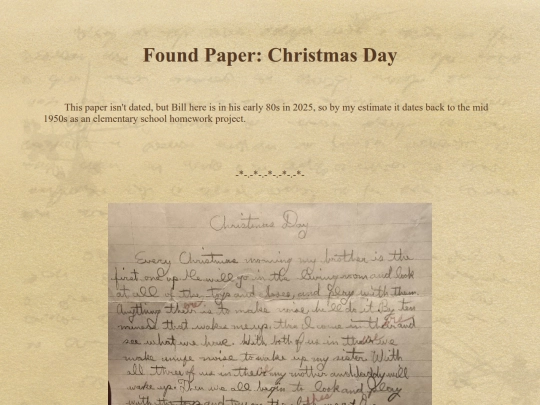 Found Paper: Christmas Day
This paper isn't dated, but Bill here is in his early 80s in 2025, so by my estimate it dates back to the mid
1950s as an elementary school homework project.
-*-.-*-.-*-.-*-.-*-
Christmas Day
Every Christmas morning my brother is the
first one up He will go in the living room and look
at all of the toys and boxes, and play with them
Anything their is to make noise, he'll do it By ten
that wakes me up. then I come in and
see what we have. With both of us in we
make noise to wake up my sister With
all three of us in my mother and daddy will
wake up. Then we all begin to look and play
with the toys and